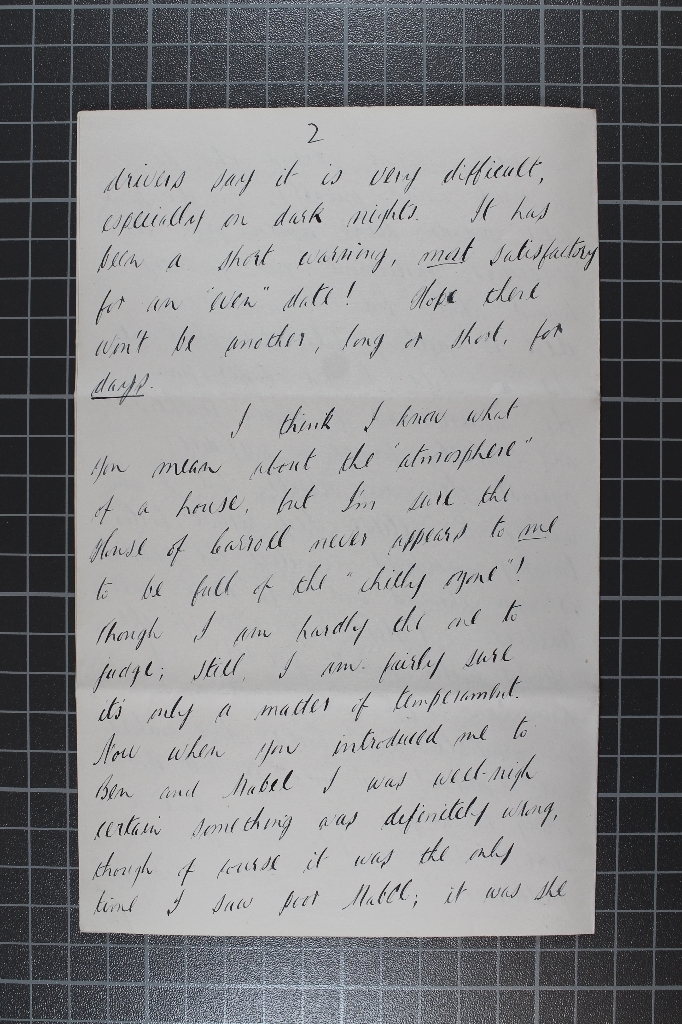 2
drivers say it is very difficult,
especially on dark nights. It has
been a short warning, most satisfactory
for an "even" date! Hope there
won't be another, long or short, for
days.
I think I know what
you mean about the "atmosphere"
of a house, but I'm sure the
House of Carroll never appears to me
to be full of the "chilly ozone"!
Though I am hardly the one to
judge; still, I am fairly sure
it's only a matter of temperament.
Now when you introduced me to
Ben and Mabel I was well-nigh
certain something was definitely wrong,
though of course it was the only
time I saw poor Mabel; it was she